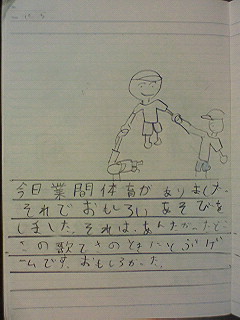 今日業間体育がありました。
それでおもしろいあそびを
しました。それは、あんたがたどこ
さの歌でさのときにとぶゲ
ームです。おもしろかった。